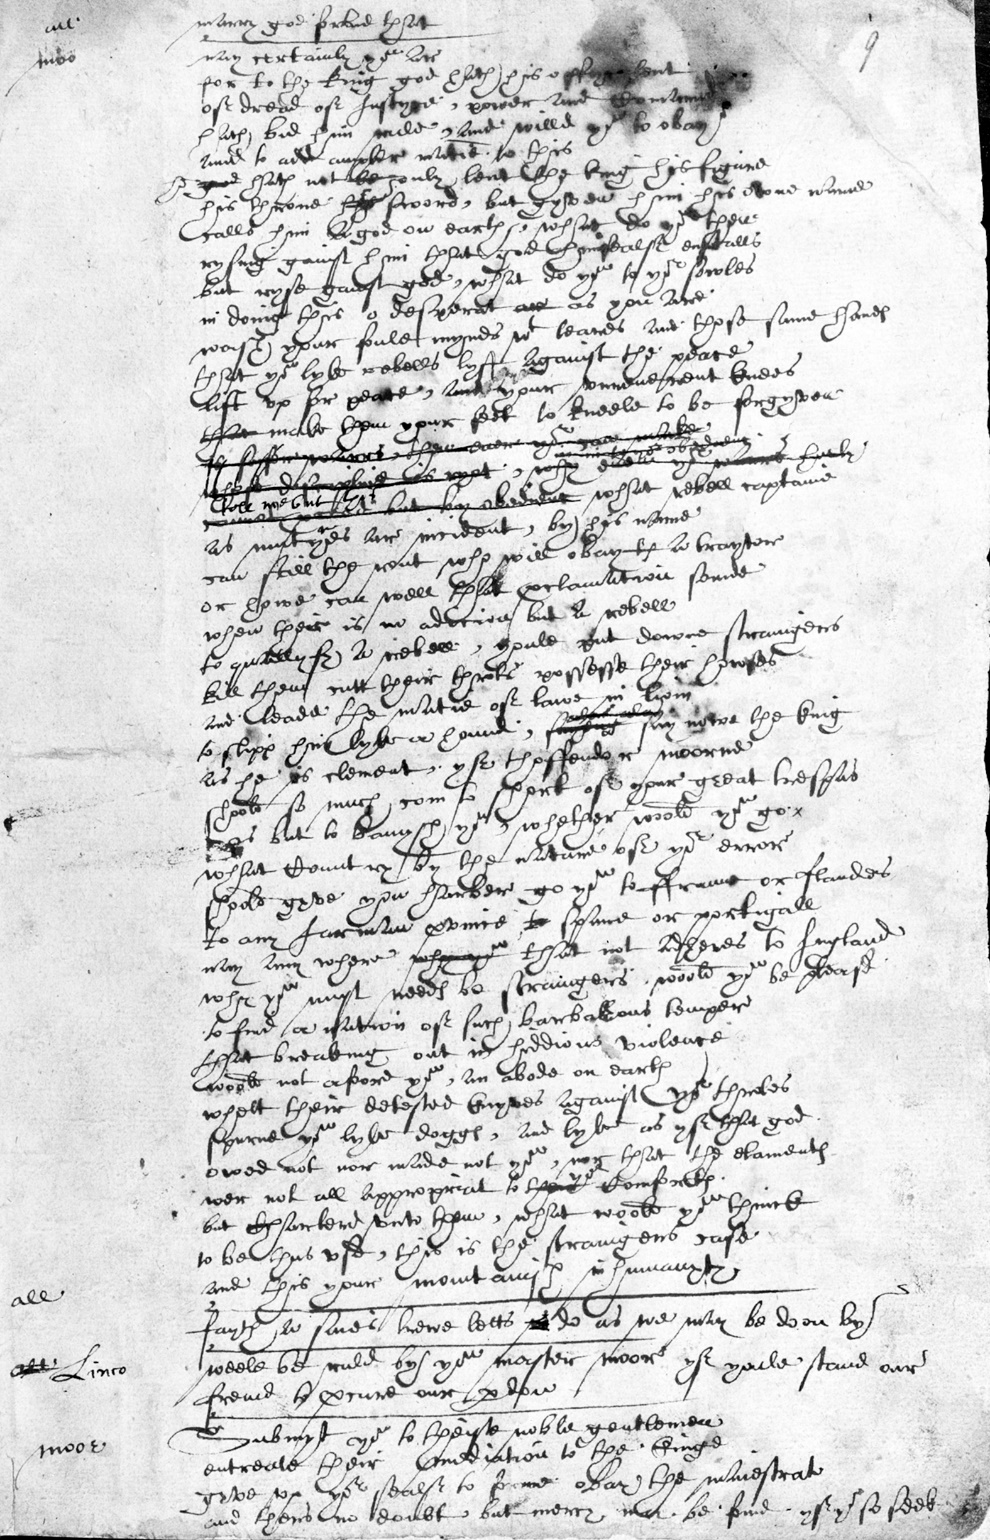 9
all marry god forbid that
moo nay certainly you ar
for to the king god hath his offyce lent
of dread of Justyce, power and Comaund
hath bid him rule, and willd you to obay
and to add ampler matie. to this
he god hath not le only lent the king his figure
his throne his sword, but gyven him his owne name
calls him a god on earth, what do you then
rysing gainst him that god himsealf enstalls
but ryse gainst god, what do you to yor sowles
in doing this o desperat ar as you are.
wash your foule mynds wt teares and those same handes
that you lyke rebells lyft against the peace
lift vp for peace, and your vnreuerent knees
that make them your feet to kneele to be forgyven
is safer warrs, then euer you can make
whose discipline is ryot, why euen yor warrs hurly
in in to yor obedienc.
cannot proceed but by obedienc what rebell captaine
tell me but this
as mutynes ar incident, by his name
can still the rout who will obay th a traytor
or howe can well that proclamation sounde
when ther is no adicion but a rebell
to quallyfy a rebell, youle put downe straingers
kill them cutt their throts possesse their howses
and leade the matie of lawe in liom
to slipp him lyke a hound, saying say nowe the king
alas alas
as he is clement, yf thoffendor moorne
shoold so much com to short of your great trespas
as but to banysh you, whether woold you go.
what Country by the nature of yor error
shoold gyve you harber go you to ffraunc or flanders
to any Jarman province to spane or portigall
nay any where why you that not adheres to Ingland
why you must needes be straingers. woold you be pleasd
to find a nation of such barbarous temper
that breaking out in hiddious violence
woold not afoord you, an abode on earth
whett their detested knyves against yor throtes
spurne you lyke doggs, and lyke as yf that god
owed not nor made not you, nor that the elaments
wer not all appropriat to their yor Comforts.
but Charterd vnto them, what woold you thinck
to be thus vsd, this is the straingers case
and this your mountanish inhumanyty
all fayth a saies trewe letts vs do as we may be doon by
all Linco weele be ruld by you master moor yf youle stand our
freind to procure our pdon
moor Submyt you to theise noble gentlemen
entreate their mediation to the kinge
gyve vp yor sealf to forme obay the maiestrate
and thers no doubt, but mercy may be found. yf you so seek